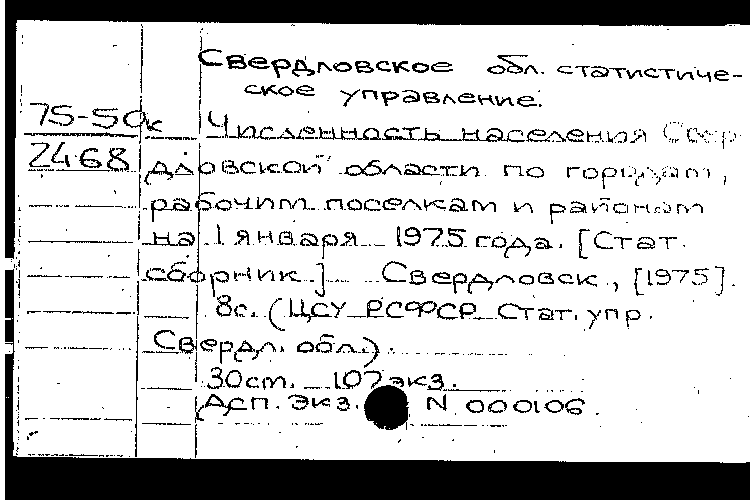 Свердловское обл. статистиче-
ское управление.
75-50к Численность населения Свер
2468 дловской области по городам,
рабочим поселкам и районам
на 1 января 1975 года. [Стат.
сборник.] Свердловск, [1975].
8с. (ЦСУ РСФСР Стат. упр.
Свердл. обл.).
30см. 107 экз.
Дсп. Экз. N 000106.